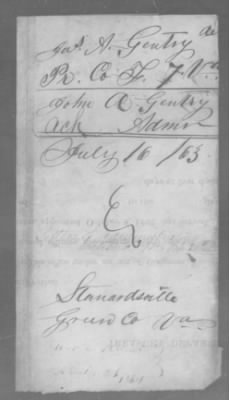 Jas. A. Gentry de
Pr. Co F. 7. Va
John A Gentry
Ack Admr
July 16 /63
E
Stanardsville
Green Co Va